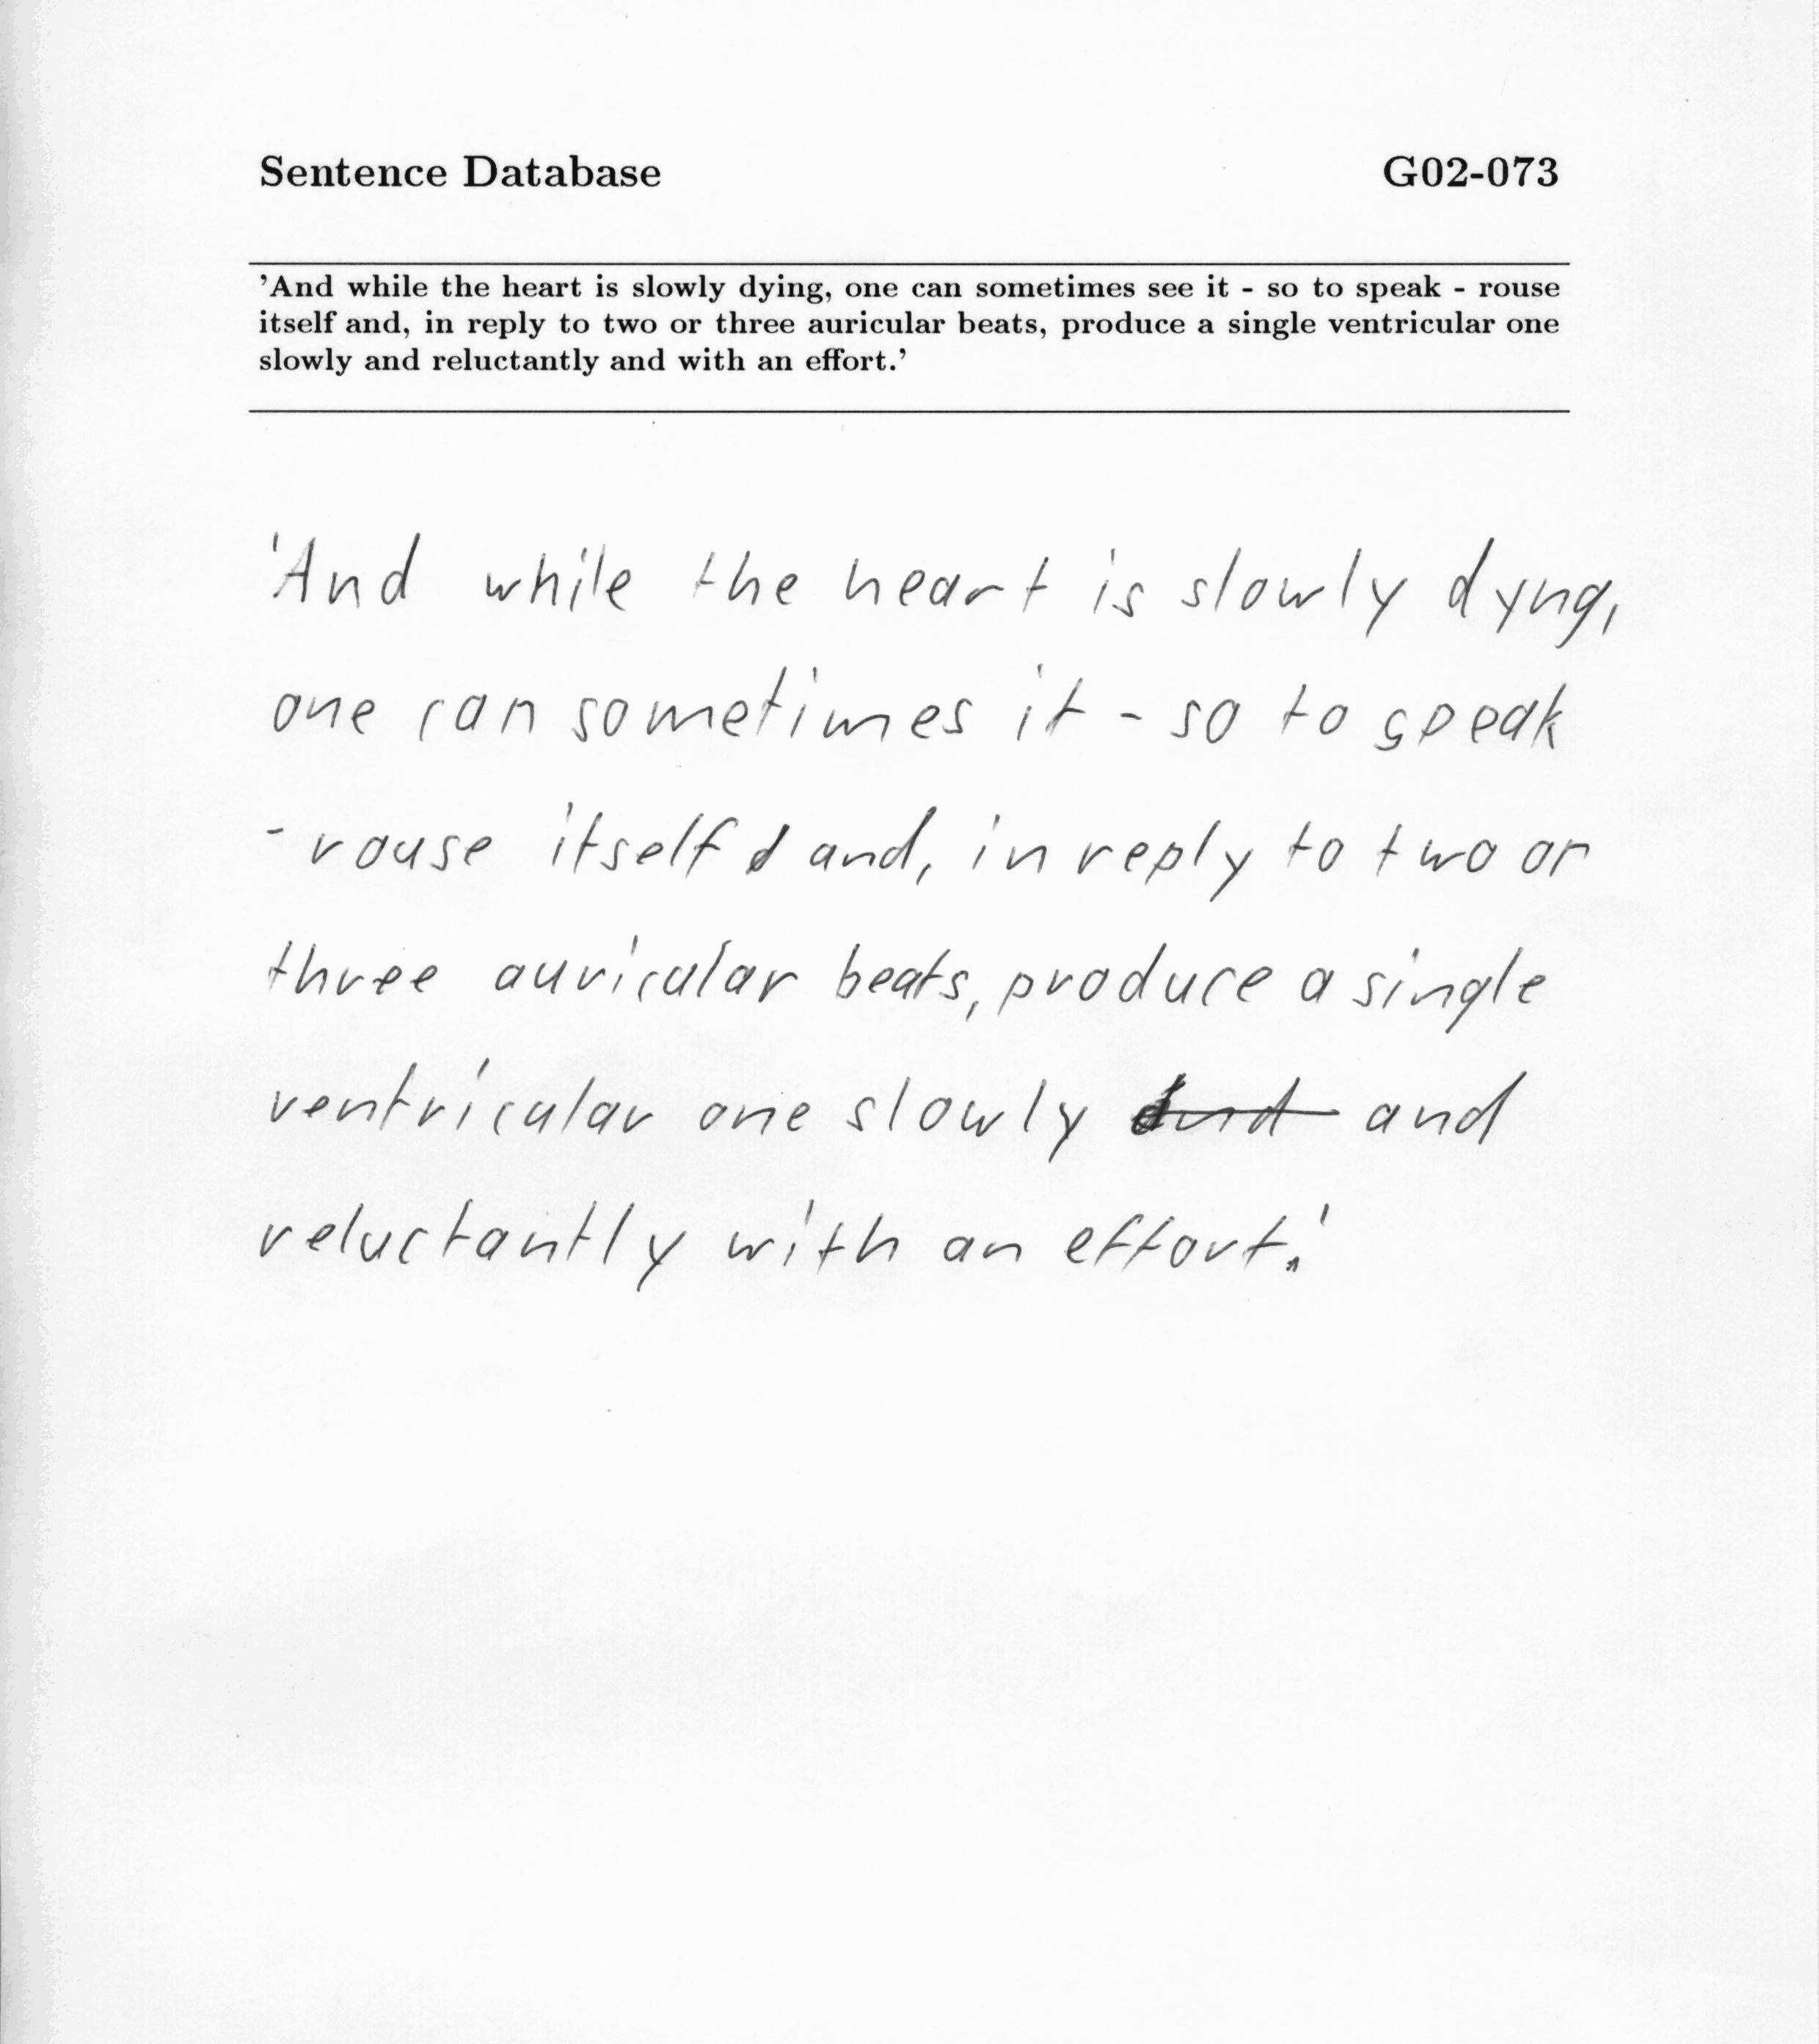 Sentence Database G02-073
'And while the heart is slowly dying, one can sometimes see it - so to speak - rouse
itself and, in reply to two or three auricular beats, produce a single ventricular one
slowly and reluctantly and with an effort.'
'And while the heart is slowly dyng,
one can sometimes it - so to speak
- rouse itself and, in reply to two or
three auricular beats, produce a single
ventricular one slowly and
reluctantly with an effort.'